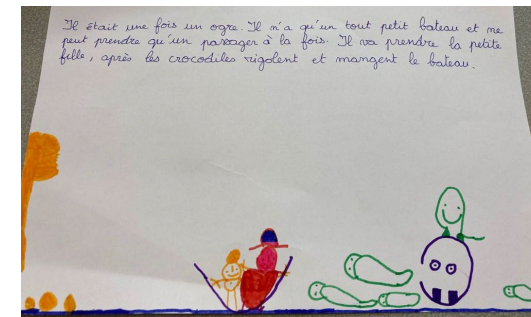 Il était une fois un ogre. Il n'a qu'un tout petit bateau et ne
peut prendre qu'un passager à la fois. Il va prendre la petite
fille, après les crocodiles rigolent et mangent le bateau.